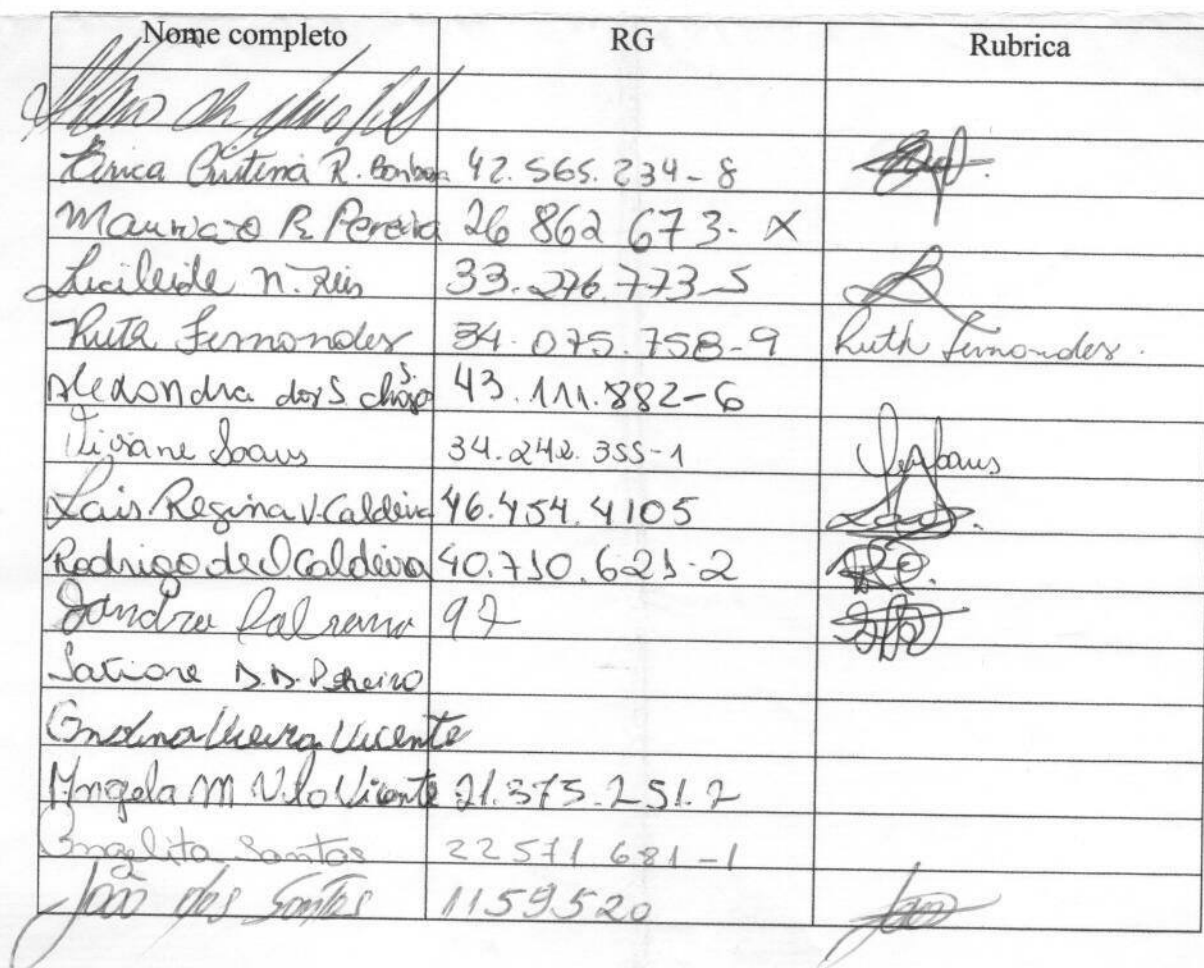 Nome completo RG Rubrica
Erica Cristina R. Barbosa 42.565.234-8
Mauricio R. Pereira 26 862 673-X
Lucileide N. Reis 33.276.773-5
Ruth Fernandes 34.075.758-9 Ruth Fernandes.
Alexandra dos S. 43.111.882-6
Viviane Soares 34.242.355-1
Lais Regina V. Caldeira 46.454.4105
Rodrigo de O Caldeira 40.710.621-2
Sandra 97
Tatiane D.D. Pinheiro
Vieira Vicente
Angela M Vicente 21.375.251.2
Angelita Santos 22571.681-1
João dos Santos 1159520